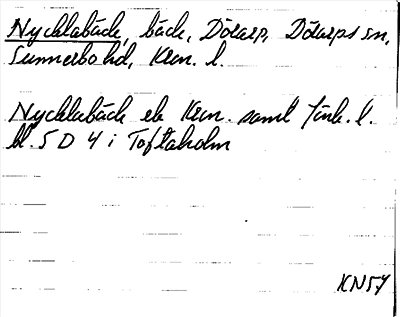 Nycklabäck, bäck, Dörarp, Dörarps sn,
Sunnerbo hd, Kron. l.
Nycklabäck ek Kron. saml Jönk. l.
bl. 5 D 4 i Toftaholm
KN57